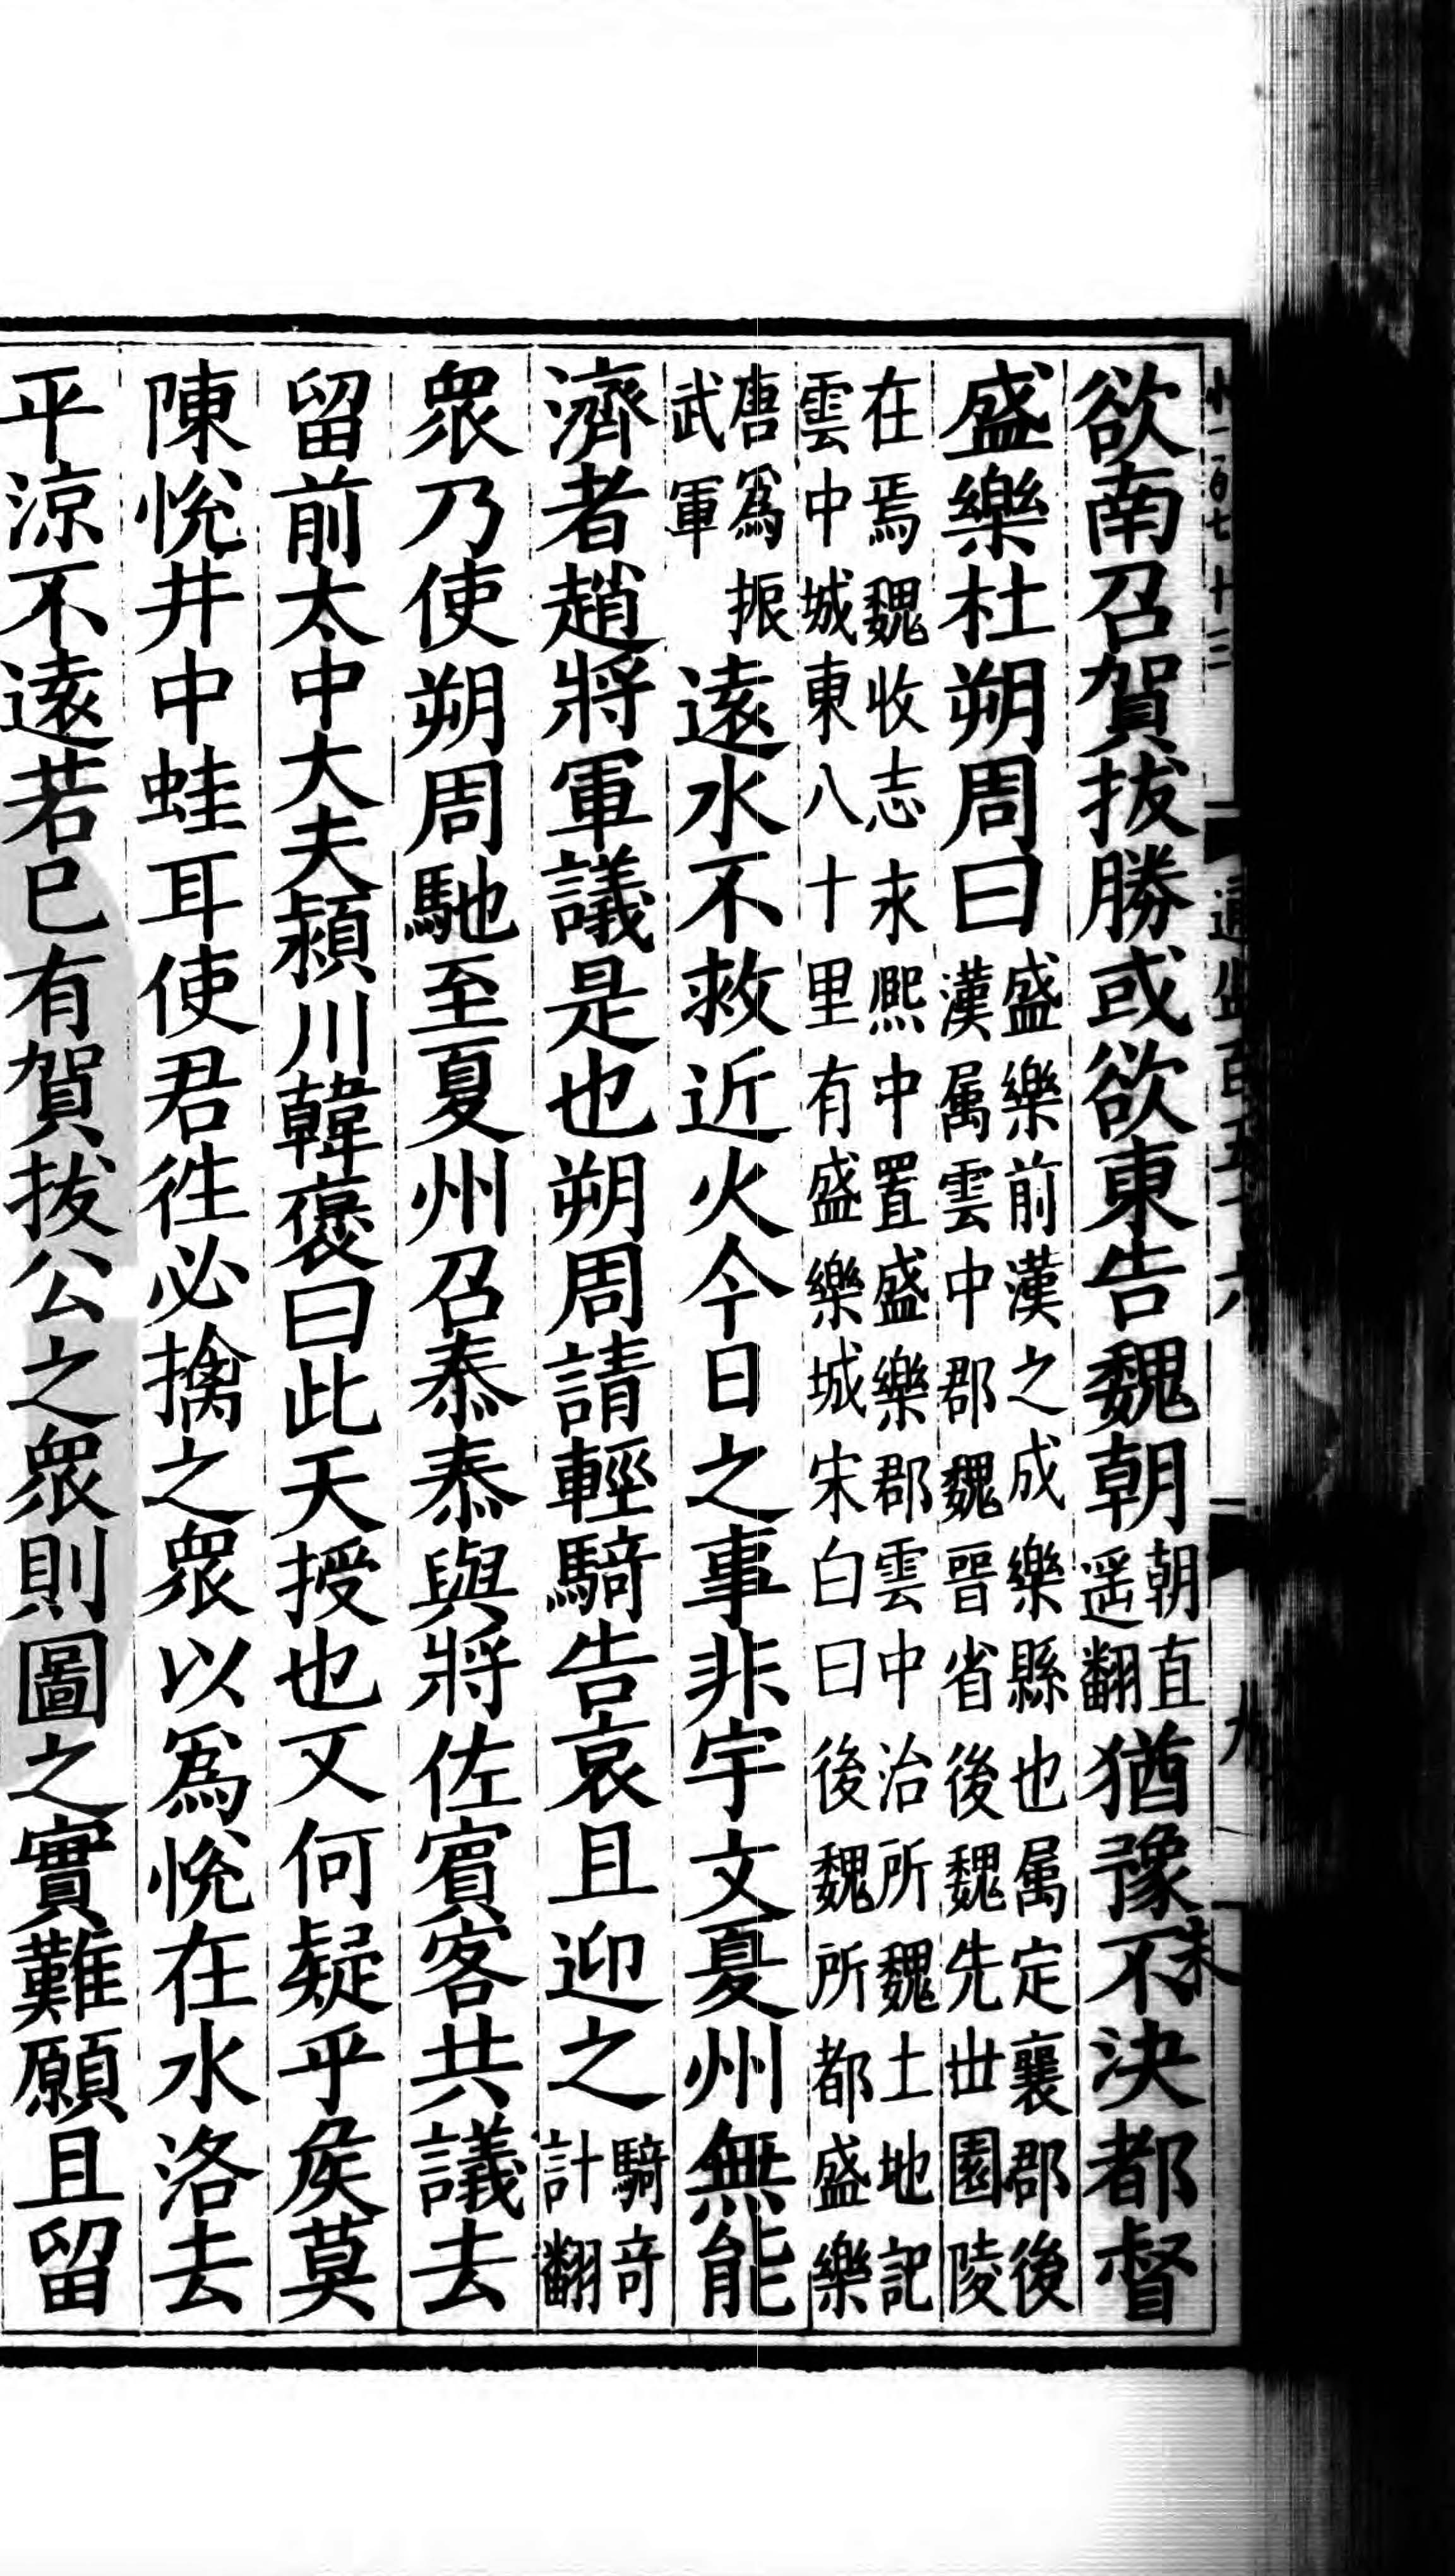 欲南召賀拔勝或欲東告魏朝朝直遥翻猶豫不決都督
盛樂杜朔周曰盛樂前漢之成樂縣也属定襄郡後漢属雲中郡魏晉省後魏先世園陵
在焉魏收志永熙中置盛樂郡雲中治所魏土地記雲中城東八十里有盛樂城宋白曰後魏所都盛樂
唐爲振武軍遠水不救近火今日之事非宇文夏州無能
濟者趙將軍議是也朔周請輕騎告哀且迎之騎奇計翻
衆乃使朔周馳至夏州召泰泰與將佐賓客共議去
留前太中大夫潁川韓褒曰此天授也又何疑乎矦莫
陳悅井中蛙耳使君往必擒之衆以爲悅在水洛去
平涼不遠若已有賀拔公之衆則圖之實難願且留